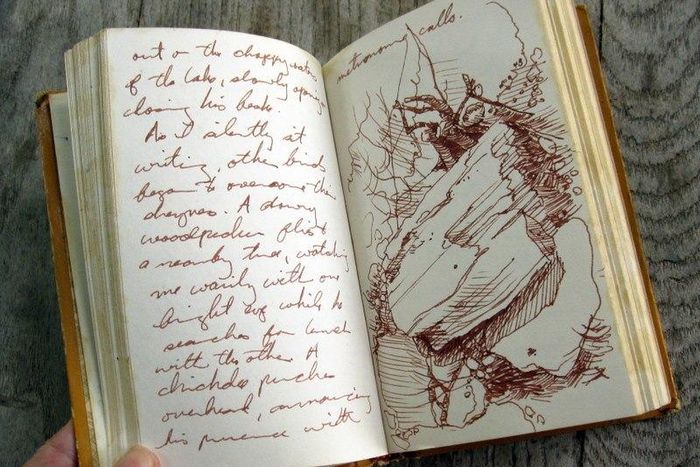 out on the choppy waters
of the lake, slowly opening
closing his beak.
As I silently sit
writing, other birds
began to overcome their
shyness. A downy
woodpecker flies to
a nearby tree, watching
me warily with one
bright eye while he
searches for lunch
with the other. A
chickadee perches
overhead, announcing
his presence with
metronomic calls.